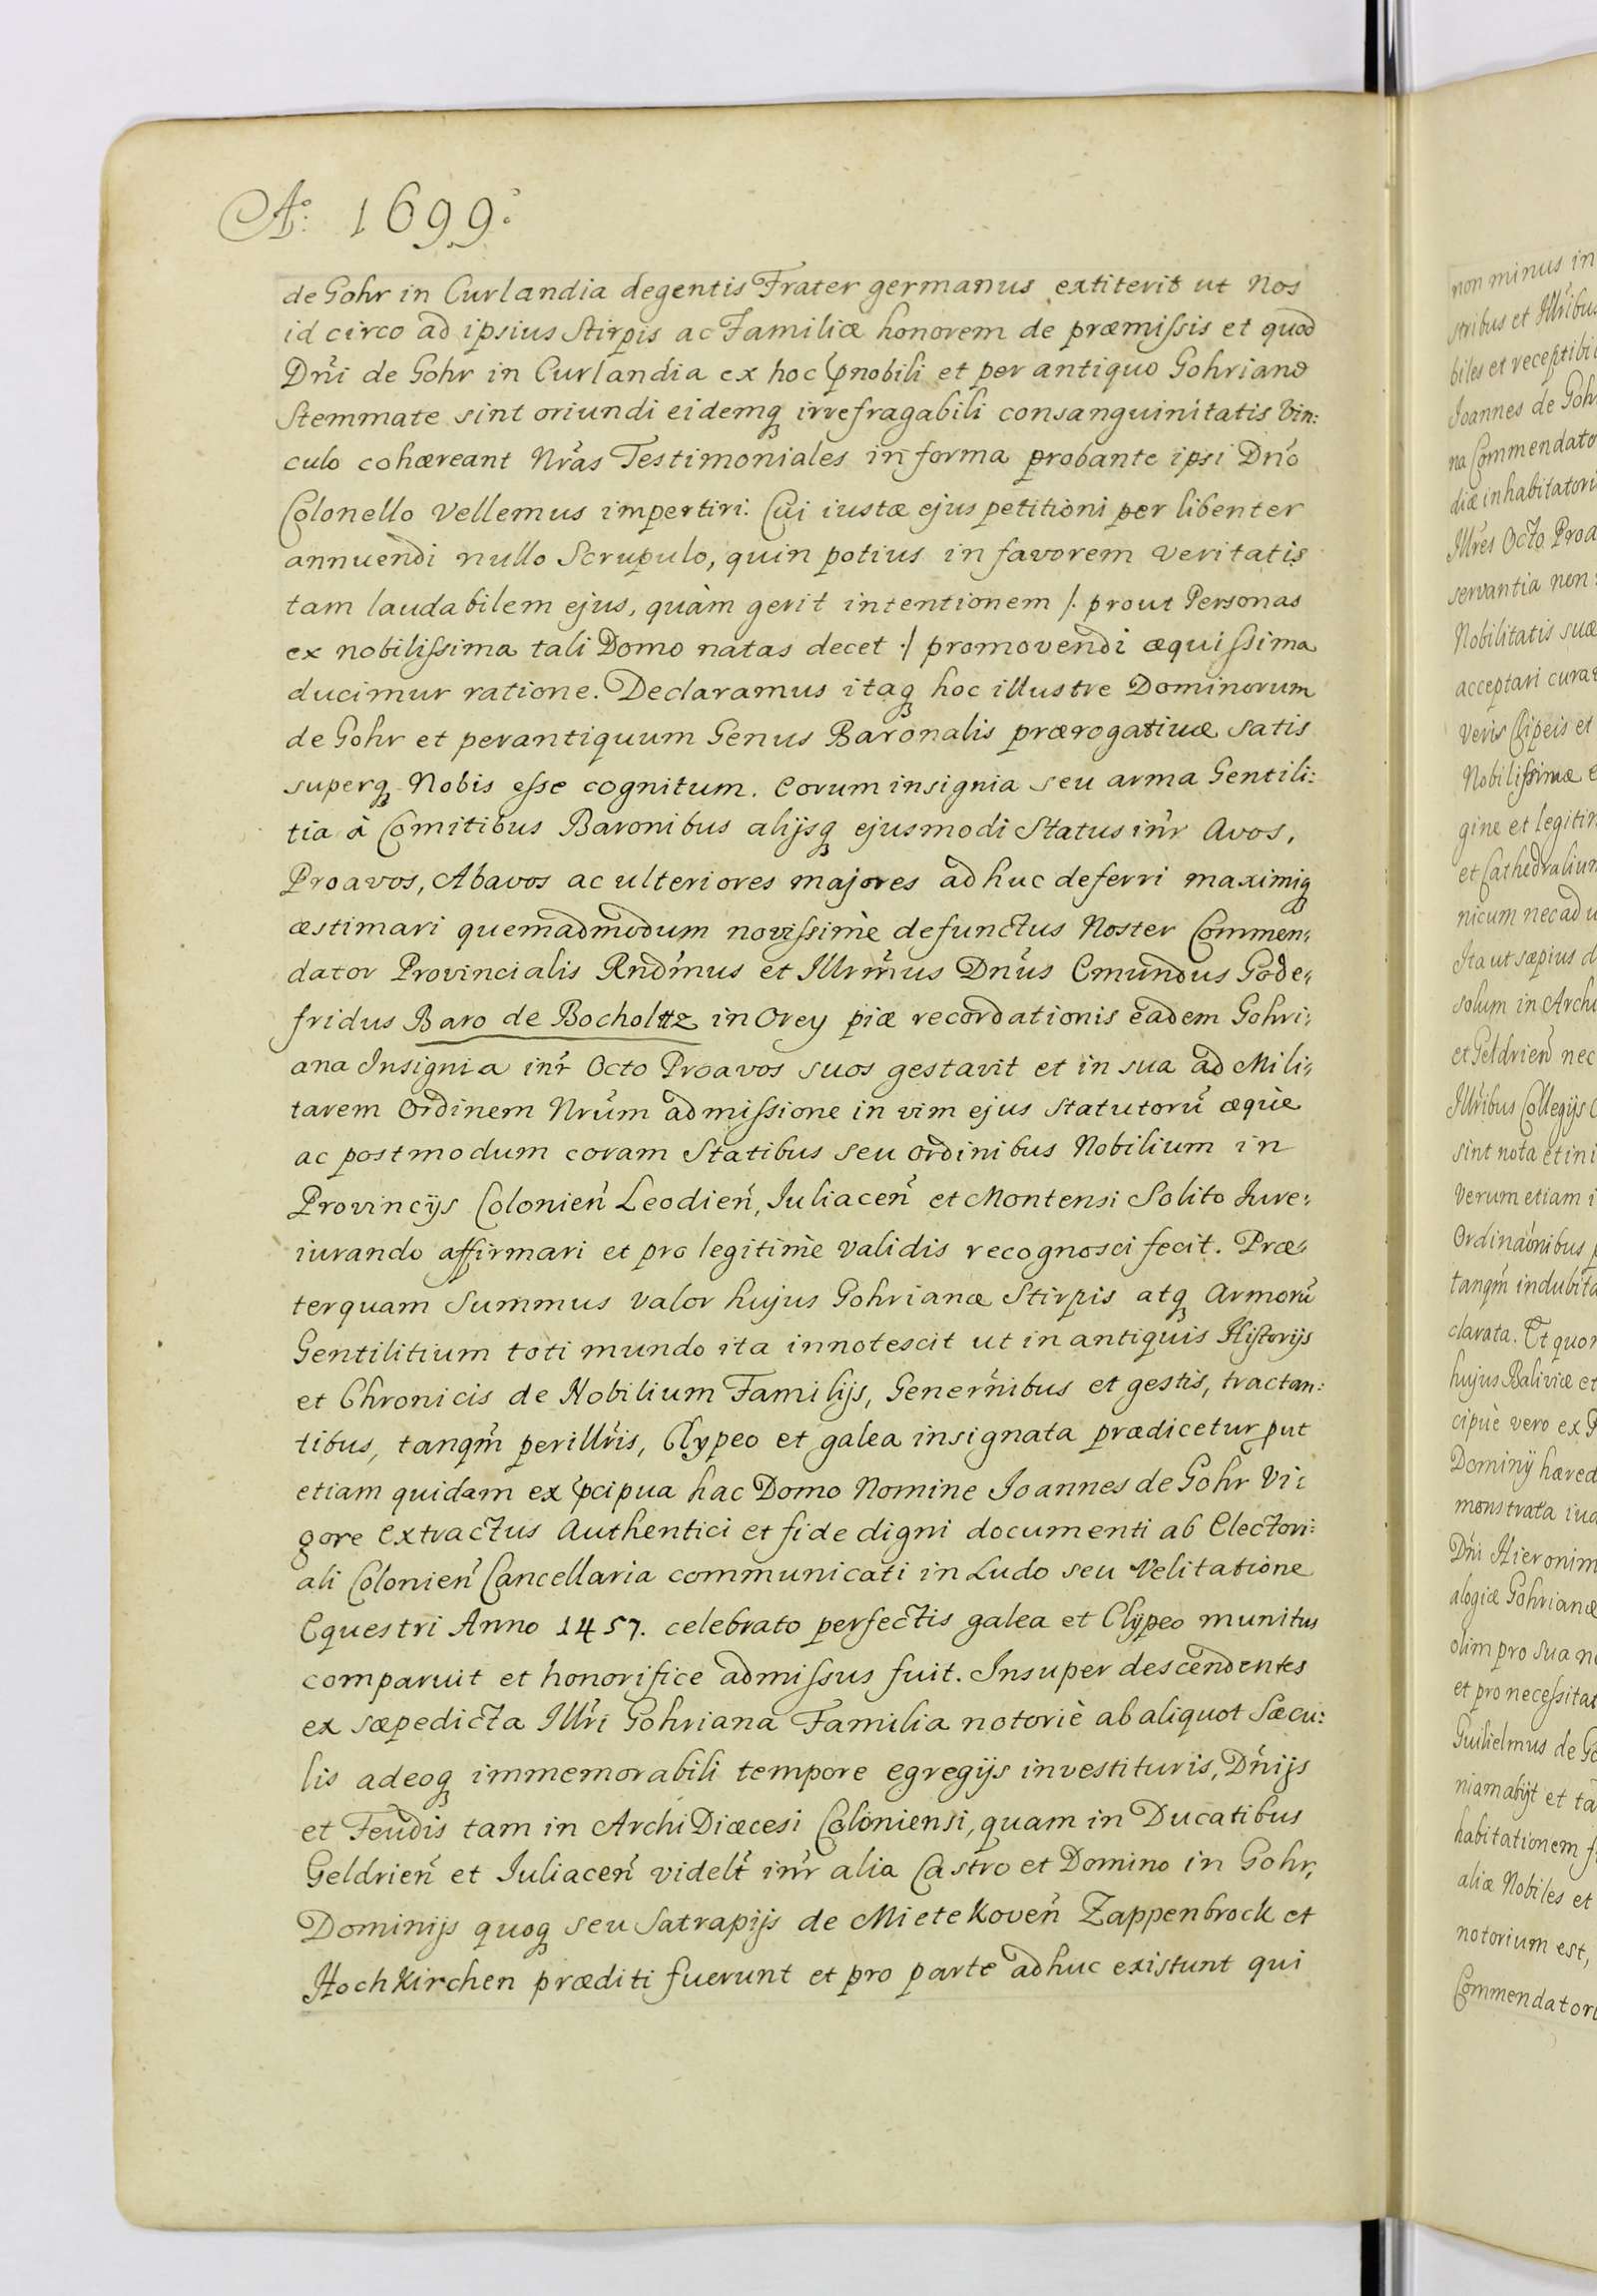 Aº: 1699:
de Gohr in Curlandia degentis Frater germanus extiterit ut Nos
id circo ad ipsius Stirpis ac Familiæ honorem de præmissis et quod
Dni de Gohr in Curlandia ex hoc pnobili et per antiquo Gohriano
Stemmate sint oriundi eidemq irrefragabili consanguinitatis Vin:
culo cohæreant Nras Testimoniales in forma probante ipsi Dno
Colonello Vellemus impertiri: Cui iustæ ejus petitioni per libenter
annuendi nullo Scrupulo, quin potius in favorem veritatis
tam laudabilem ejus, quàm gerit intentionem /. prout Personas
ex nobilissima tali Domo natas decet ./ promovendi æquissima
ducimur ratione. Declaramus itaq hoc illustre Dominorum
de Gohr et perantiquum Genus Baronalis prærogativæ satis
superq Nobis esse cognitum. Eorum insignia seu arma Gentili:
tia à Comitibus Baronibus alijsq ejusmodi Status inr Avos,
Proavos, Abavos ac ulteriores majores ad huc deferri maximiq
æstimari quemadmodum novissimè defunctus Noster Commen:
dator Provincialis Rndmus et Illrmus Dnus Emundus Gode:
fridus Baro de Bocholttz in Orey piæ recordationis eadem Gohri:
ana Insignia inr Octo Proavos suos gestavit et in sua ad Mili:
tarem Ordinem Nrum admissione in vim ejus Statutorũ æquè
ac postmodum coram Statibus seu ordinibus Nobilium in
Provincijs Colonien Leodien, Iuliacen et Montensi Solito Iure:
iurando affirmari et pro legitimè validis recognosci fecit. Præ:
terquam Summus valor hujus Gohrianæ Stirpis atq Armorũ
Gentilitium toti mundo ita innotescit ut in antiquis Historijs
et Chronicis de Nobilium Familijs, Genernibus et gestis, tractan:
tibus, tanqm perillris, Clypeo et galea insignata prædicetur put
etiam quidam ex pcipua hac Domo Nomine Ioannes de Gohr Vi:
gore extractus Authentici et fide digni documenti ab Electori:
ali Colonien Cancellaria communicati in Ludo seu Velitatione
Equestri Anno 1457. celebrato perfectis galea et Clypeo munitus
comparuit et honorifice admissus fuit. Insuper descendentes
ex sæpedicta Illri Gohriana Familia notoriè ab aliquot Sæcu:
lis adeoq immemorabili tempore egregijs investituris, Dnijs
et Feudis tam in Archi Diæcesi Coloniensi, quam in Ducatibus
Geldrien et Iuliacen videlt inr alia Castro et Domino in Gohr,
Dominijs quoq seu Satrapijs de Mietekoven Zappenbrock et
Hochkirchen præditi fuerunt et pro parte adhuc existunt qui
non minus in
stribus et Illribus
biles et receptibi
Ioannes de Goh
na Commendato
diæ inhabitatori
Illres Octo Proa
servantia non
Nobilitatis suæ
acceptari cura
veris Clipeis et
Nobilissimæ
gine et legiti
et Cathedraliu
nicum nec ad u
Ita ut sæpius d
solum in Archi
et Geldrien nec
Illribus Collegijs
sint nota et in i
Verum etiam i
Ordinaonibus p
tanqm indubita
clarata. Et quo
hujus Baliviæ et
cipuè vero ex
Dominij hæred
monstrata iu
Dni Hieronim
alogiæ Gohrianæ
olim pro sua n
et pro necessitat
Guilielmus de Go
niam abijt et ta
habitationem f
aliæ Nobiles et
notorium est,
Commendatori